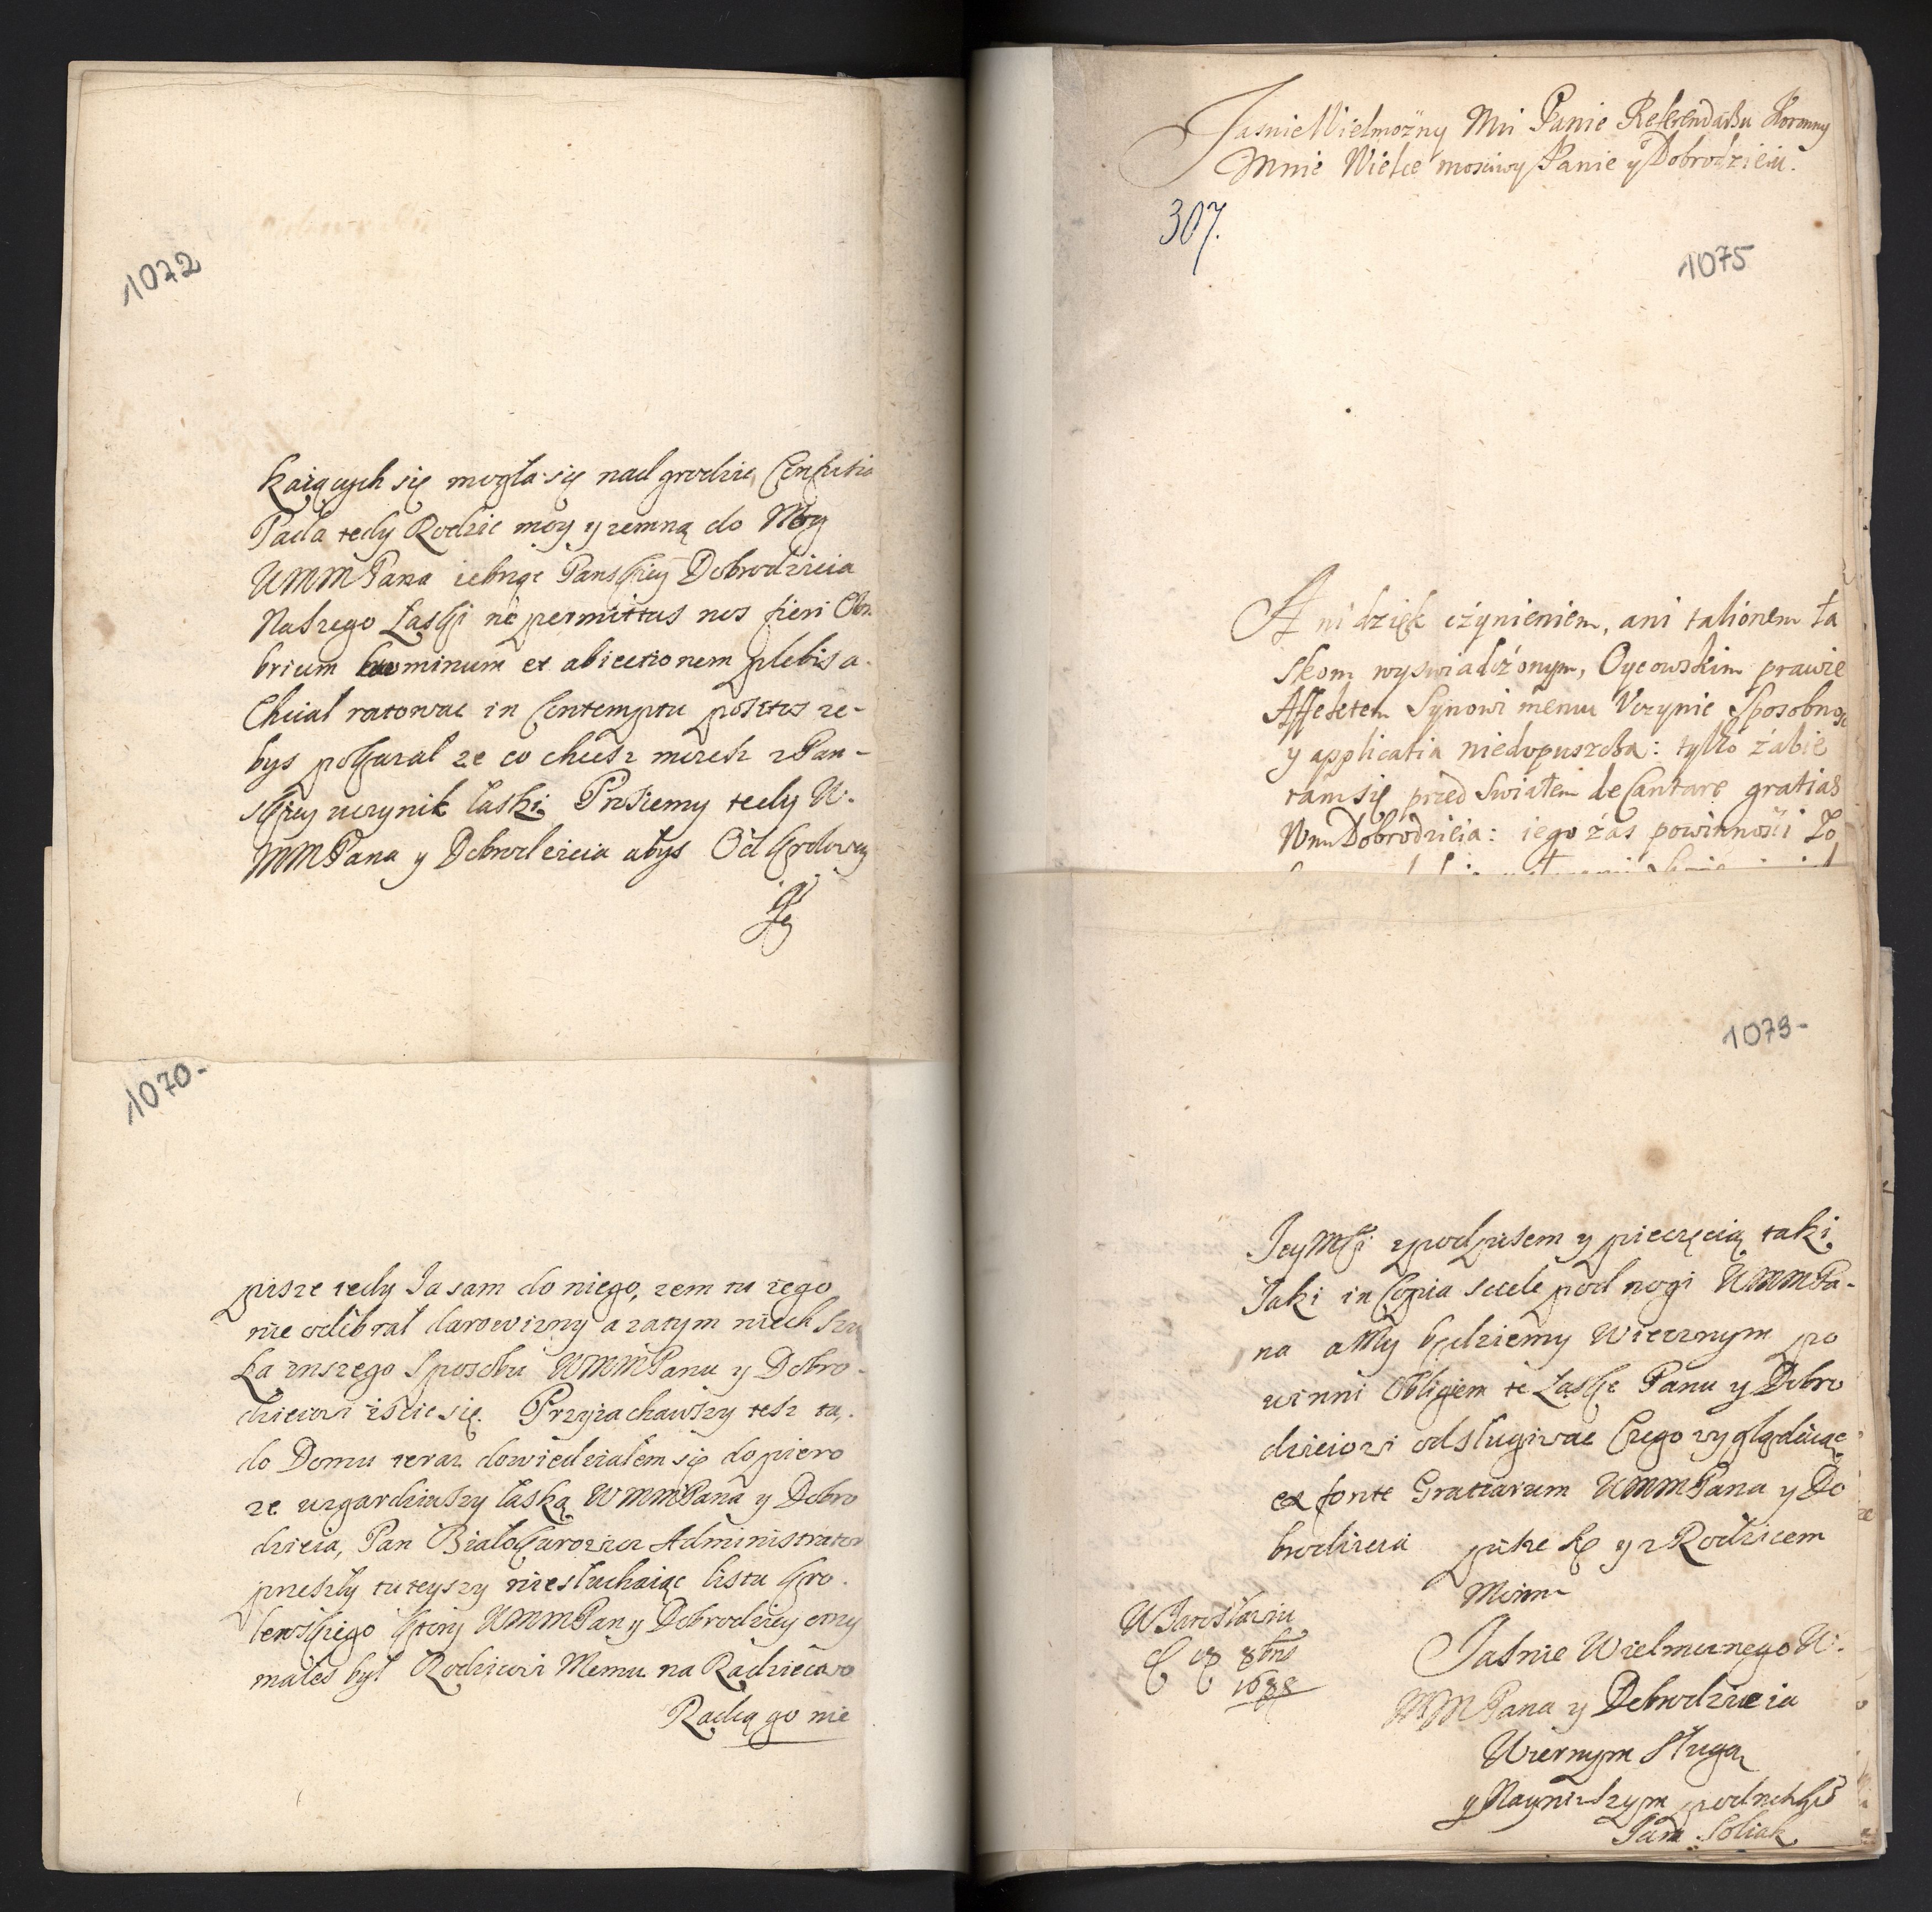 1072
kaiących się mogła się nadgrodzić,
Pada tedy Rodzic moy y zemną do Nog
WMMPana żebrząc Panskiey Dobrodzieia
Naszego Łaski ne permittas nos fieri Oбо
brium hominum et abiectionem plebis a.
Chciał ratować in Contemptu positos że-
bys pokazał ze co chcesz mozesz z Pan-
skiey uczynić łaski Prosiemy tedy W.
MMPana y Dobrodzieia abys Od
1070-
pisze tedy Ja sam do niego, zem tu tego
nie odibrał darowizny a zatym niech szu
ka inszego sposobu WMMPanu y Dobro-
dzieiowi iscic się. Przyiachawszy tesz tu.
do Domu teraz dowiedziałem się dopiero
ze wzgardziwszy łaską WMMPana y Dobro
dzieia, Pan Administrator
przeszły tuteyszy niesłuchaiąc listu Kro.
lewskiego ktory WMMPan y Dobrodziey otrzy
małes był Rodzicowi Memu na Radziectwo
Radcą go nie
Jasnie Wielmożny Mći Panie Referendarzu Koronny
Mnie Wielce mosciwy Panie y Dobrodzieiu.
307.
1075
Ani dzięk czynieniem, ani talionem ła
skom wyswiadczonym, Oycowskim prawie
Affektem Synowi memu Uczynić Sposobnosc
y applicatia niedopuszcza: tylko zabie
ram się przed Swiatem deCantare gratias
Wm Dobrodzieia: iego zas powinnosci Zo
1073-
JeyMści z podpisem y pieczęcią taki
Jaki in Copia scielę pod nogi WMMPa-
na a My będziemy Wiecznym po
winni Obligiem tę Łaskę Panu y Dobro
dzieiowi odsługiwac Czego wyglądaiąc
ex fonte Gratiarum WMMPana y Do
brodzieia piszę się y z Rodzicem
Moim
W Jarosławiu
8bris
1688
Jasnie Wielmoznego W.
MMPana y Dobrodzieia
Wiernym sługą
y Nayniszym podnozkiē